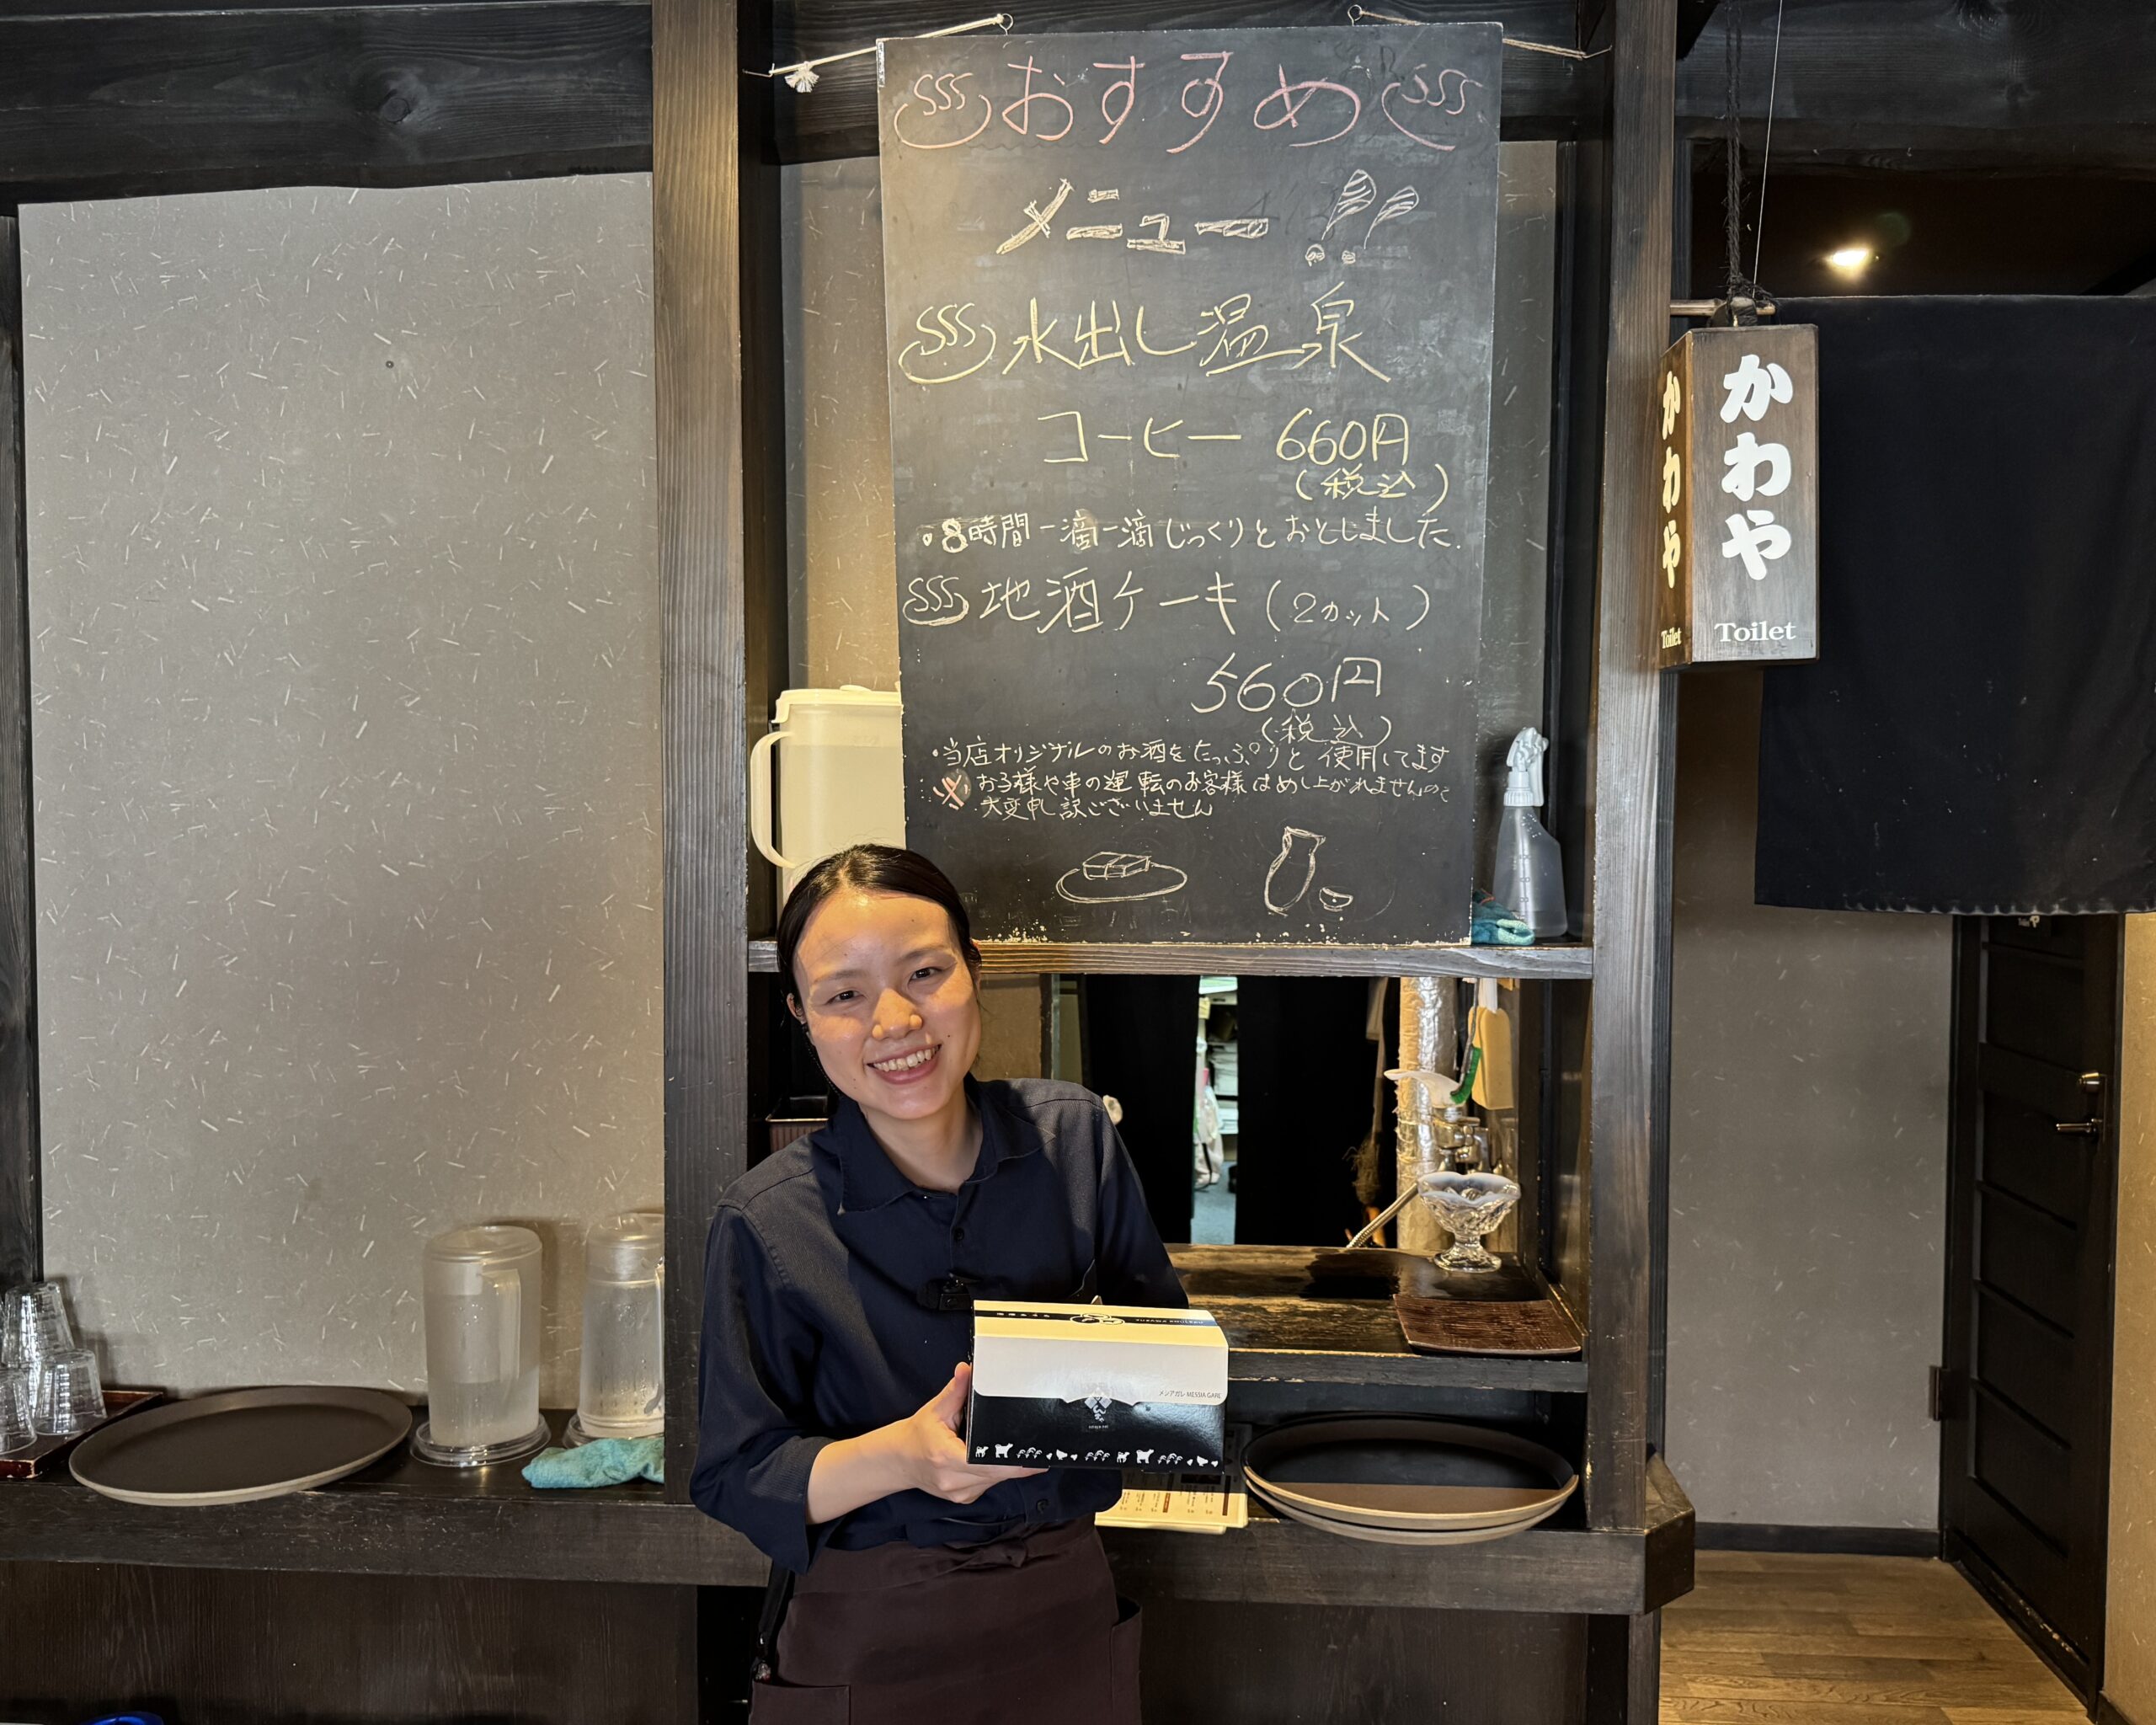 おすすめ
メニュー!!
水出し温泉
コーヒー 660円
(税込)
・8時間一滴一滴じっくりとおとしました.
地酒ケーキ(2カット)
560円
(税込)
・当店オリジナルのお酒をたっぷりと使用してます
※お子様や車の運転のお客様はめし上がれませんので
大変申し訳ございません
かわや
Toilet
かわや
Toilet
メシアガレ MESSIA GARE